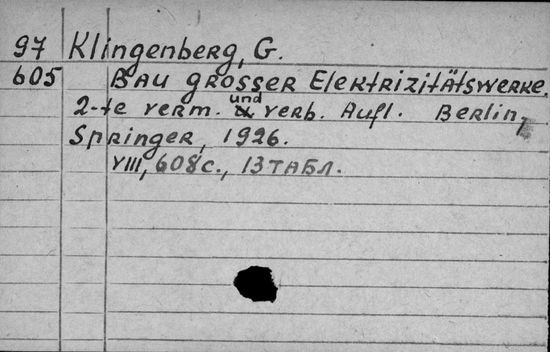 97 Klingenberg, G.
605 Bau grosser Elektrizitätswerke.
2-te verm. und verb. Aufl. Berlin,
Springer, 1926.
VIII, 608 с., 13 табл.